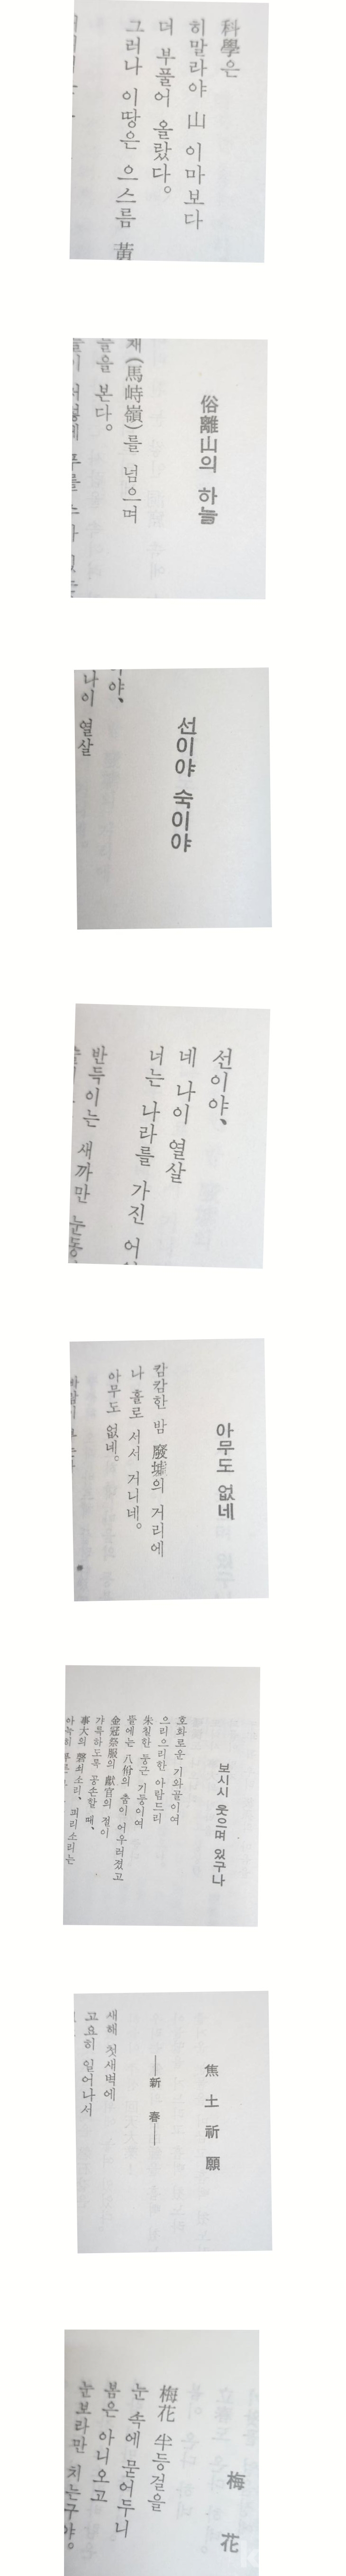 科學은
히말라야 山 이마보다
더 부풀어 올랐다。
그러나 이땅은 으스름 黃
俗離山의 하늘
재(馬峙嶺)를 넘으며
들을 본다。
선이야 숙이야
이야、
나이 열살
선이야、
네 나이 열살
너는 나라를 가진 어
반득이는 새까만 눈동
아무도 없네
캄캄한 밤 廢墟의 거리에
나 홀로 서서 거니네。
아무도 없네。
보시시 웃으며 있구나
호화로운 기와골이여
으리으리한 아람드리
朱칠한 둥근 기둥이여
뜰에는 八佾의 춤이 어우러졌고
金冠祭服의 獻官의 절이
갸륵하도록 공손할 때、
事大의 磬쇠소리、피리소리는
焦土祈願
―新春―
새해 첫새벽에
고요히 일어나서
梅花
梅花 半등걸을
눈 속에 묻어두니
봄은 아니오고
눈보라만 치는구야。